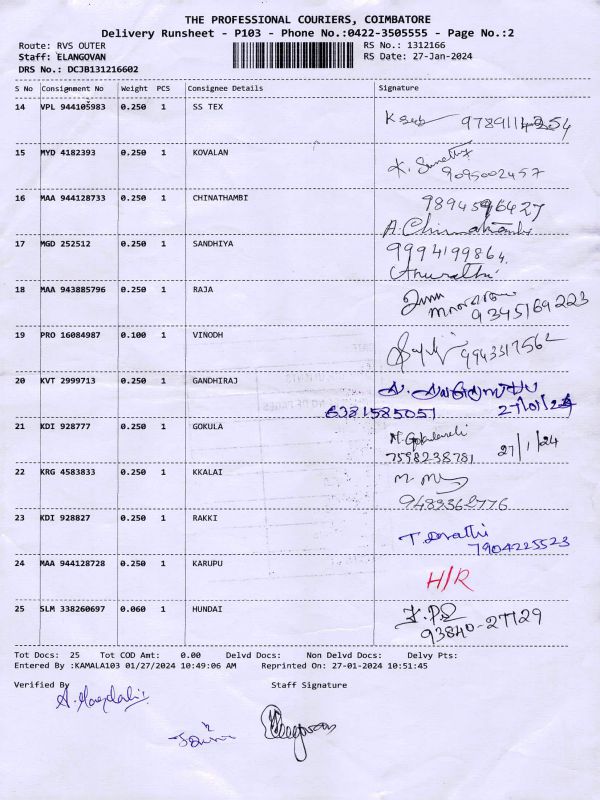 THE PROFESSIONAL COURIERS, COIMBATORE
Delivery Runsheet - P103 - Phone No.:0422-3505555 - Page No.:2
Route: RVS OUTER
RS No.: 1312166
Staff: ELANGOVAN
RS Date: 27-Jan-2024
DRS No.: DCJB131216602
S No Consignment No Weight PCS Consignee Details Signature
14 VPL 944105983 0.250 1 SS TEX
15 MYD 4182393 0.250 1 KOVALAN
9095002457
16 MAA 944128733 0.250 1 CHINATHAMBI
9894596427
17 MGD 252512 0.250 1 SANDHIYA
9994199864
18 MAA 943885796 0.250 1 RAJA
9345169223
19 PRO 16084987 0.100 1 VINODH
9943317562
20 KVT 2999713 0.250 1 GANDHIRAJ
6381585051 27/01/24
21 KDI 928777 0.250 1 GOKULA
7598238781 27/1/24
22 KRG 4583833 0.250 1 KKALAI
9489362776
23 KDI 928827 0.250 1 RAKKI
7904225523
24 MAA 944128728 0.250 1 KARUPU
H/R
25 SLM 338260697 0.060 1 HUNDAI
93840-27129
Tot Docs: 25 Tot COD Amt: 0.00 Delvd Docs: Non Delvd Docs: Delvy Pts:
Entered By :KAMALA103 01/27/2024 10:49:06 AM Reprinted On: 27-01-2024 10:51:45
Verified By Staff Signature